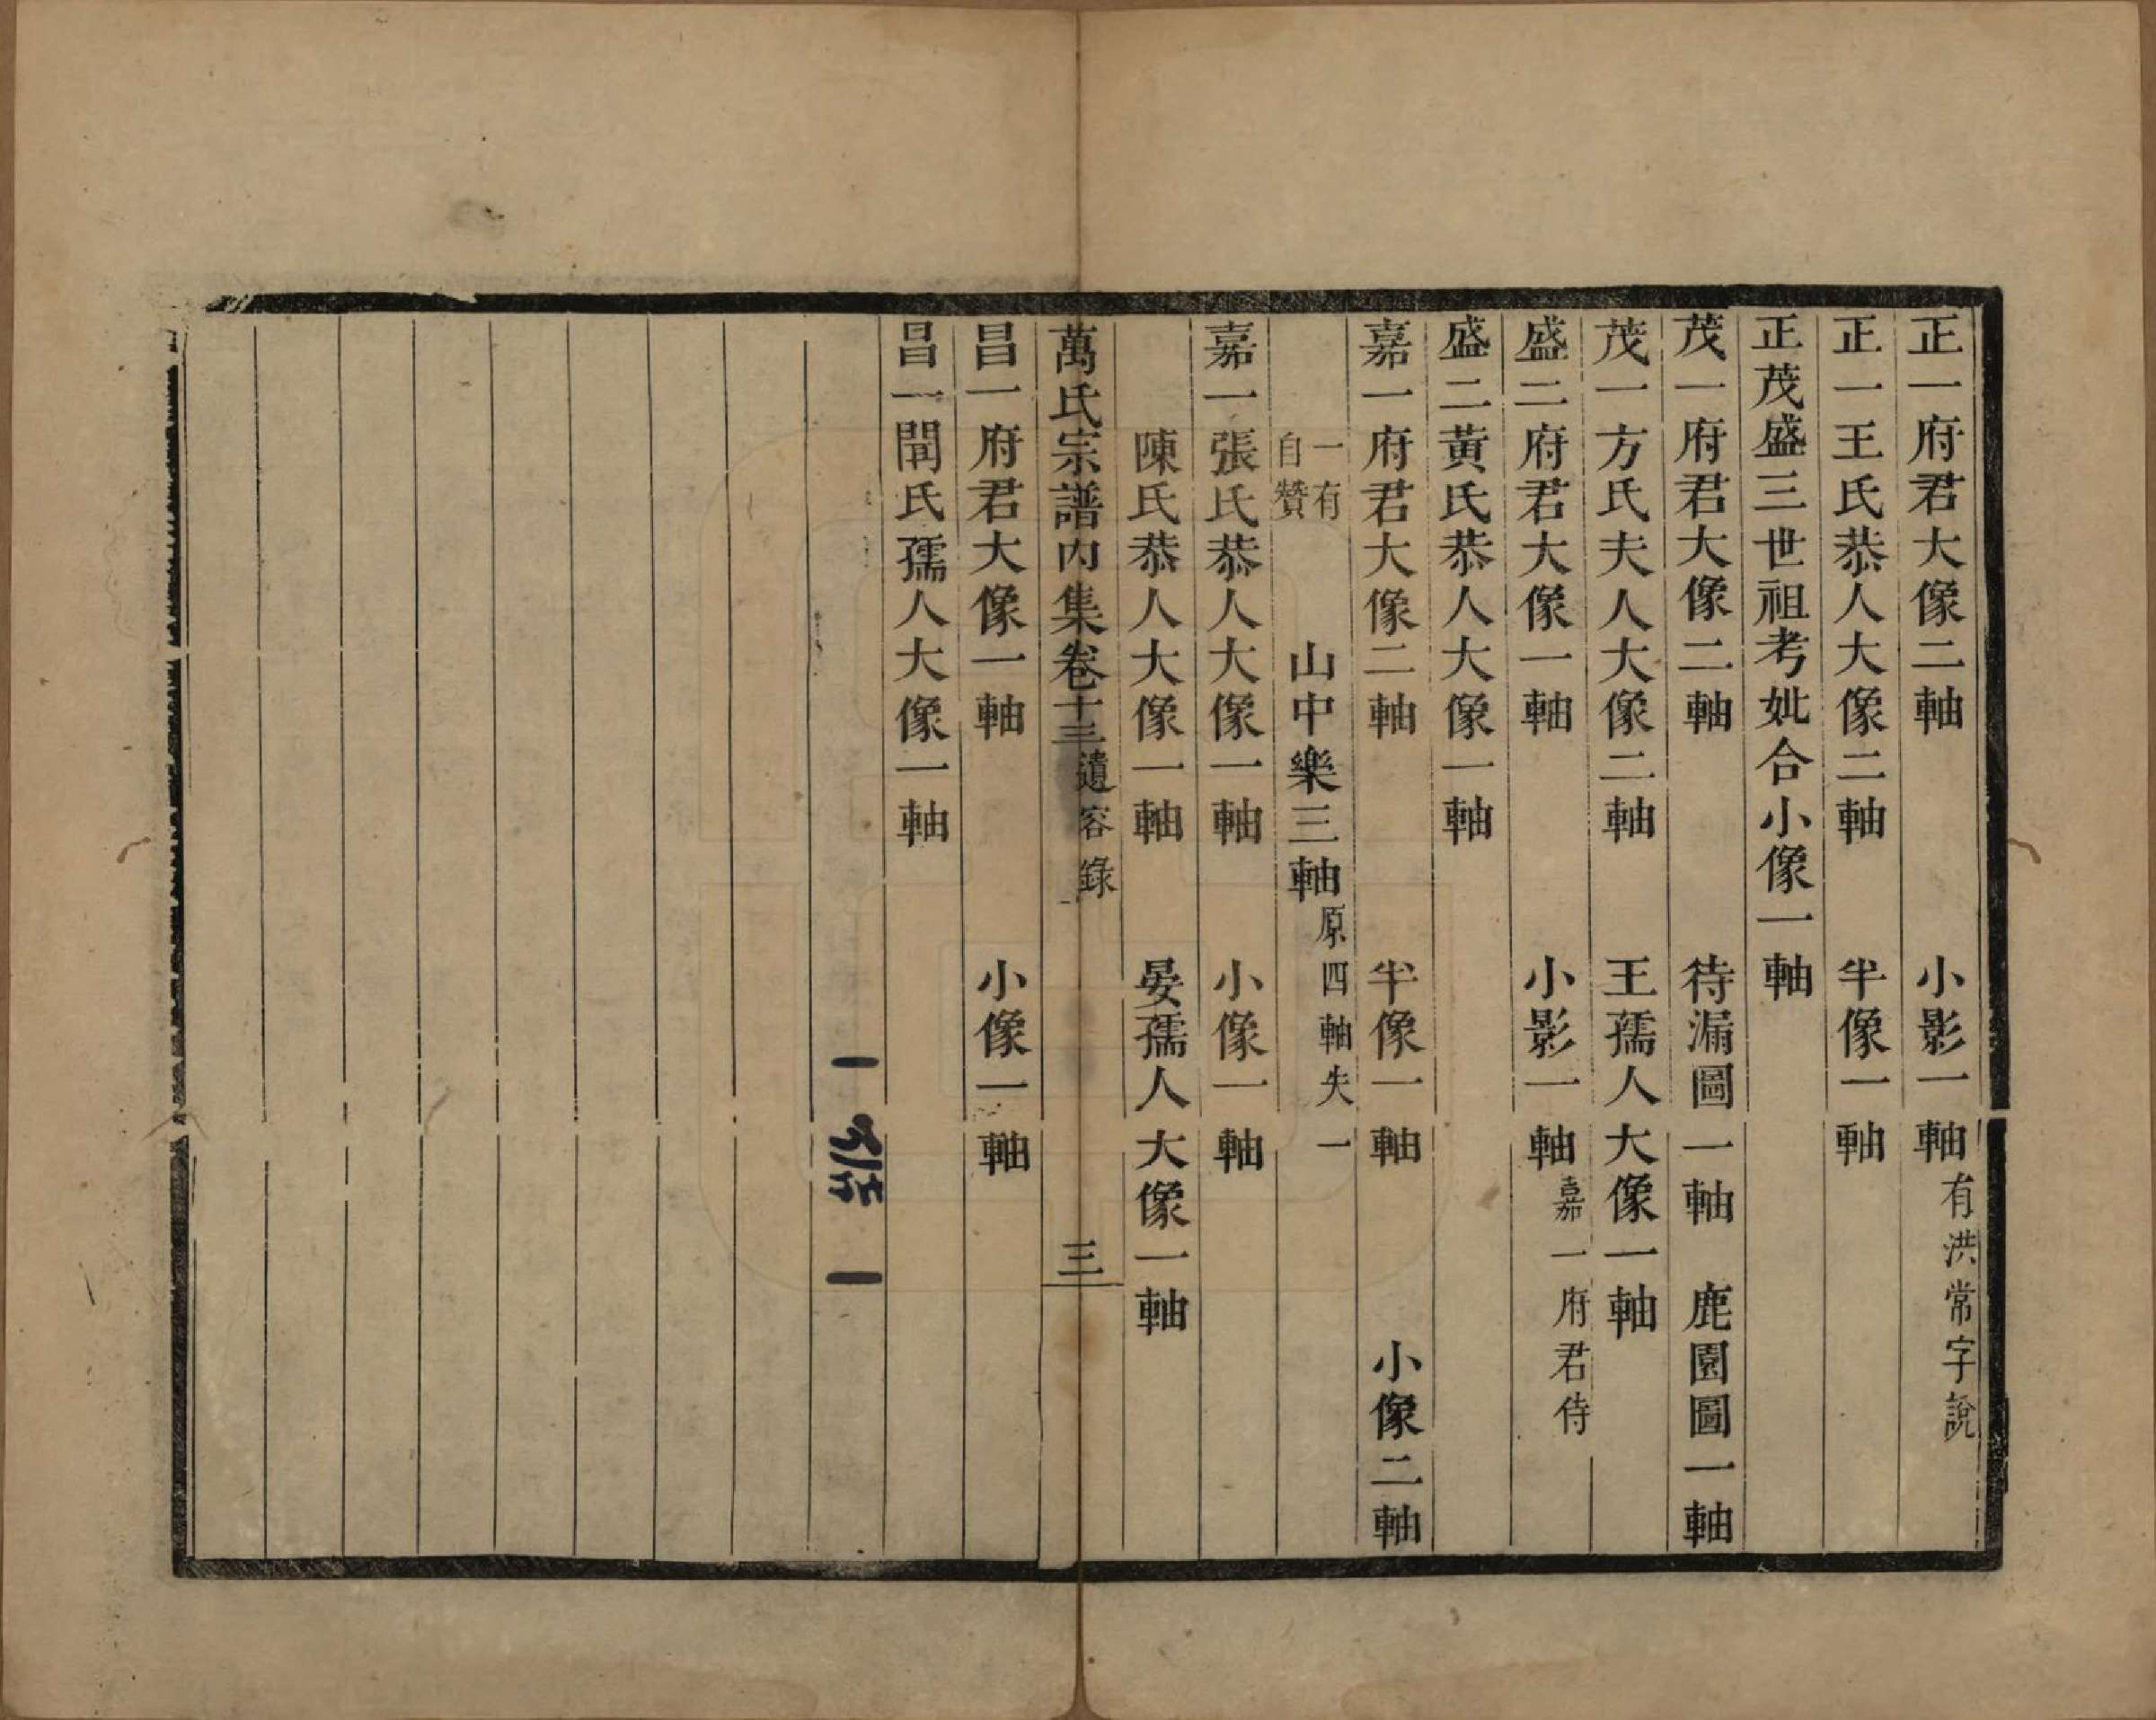 正一府君大像二軸　小影一軸有洪常字說
正一王氏恭人大像二軸　半像一軸
正茂盛三世祖考妣合小像一軸
茂一府君大像二軸　待漏圖一軸　鹿園圖一軸
茂一方氏夫人大像二軸　王孺人大像一軸
盛二府君大像一軸　小影一軸嘉一府君侍
盛二黃氏恭人大像一軸
嘉一府君大像二軸　半像一軸　小像二軸
一有自贊　山中樂三軸原四軸失一
嘉一張氏恭人大像一軸　小像一軸
陳氏恭人大像一軸　晏孺人大像一軸
萬氏宗譜內集卷十三遺容錄　三
昌一府君大像一軸　小像一軸
昌一聞氏孺人大像一軸